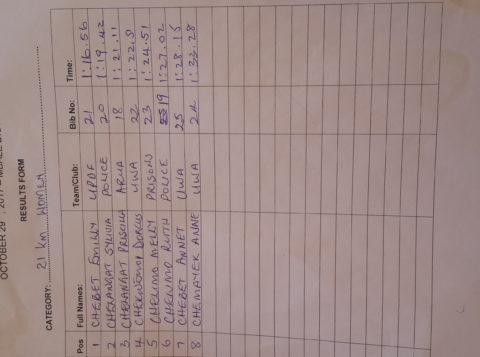 OCTOBER 29
RESULTS FORM
CATEGORY: 21 km WOMEN
Pos Full Names: Team/Club: Bib No: Time:
1 CHEBET EMILLY UPDF 21 1:16.56
2 CHELANGAT SYLIVIA POLICE 20 1:19.42
3 CHELANGAT PRISCILLA ARUA 18 1:21.11
4 CHEKWEMOI DORCUS UWA 22 1:22.51
5 CHELIMO MELLY PRISONS 23 1:24.51
6 RUTH POLICE 19 1:27.02
7 CHEBET ANNET UWA 25 1:28.15
8 CHEMAYEK ANNE UWA 24 1:33.28